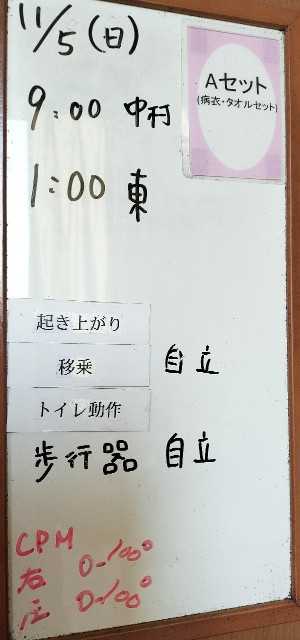 11/5(日)
Aセット
(病衣・タオルセット)
9:00 中村
1:00 東
起き上がり
移乗 自立
トイレ動作
歩行器 自立
CPM
右 0-100°
左 0-100°